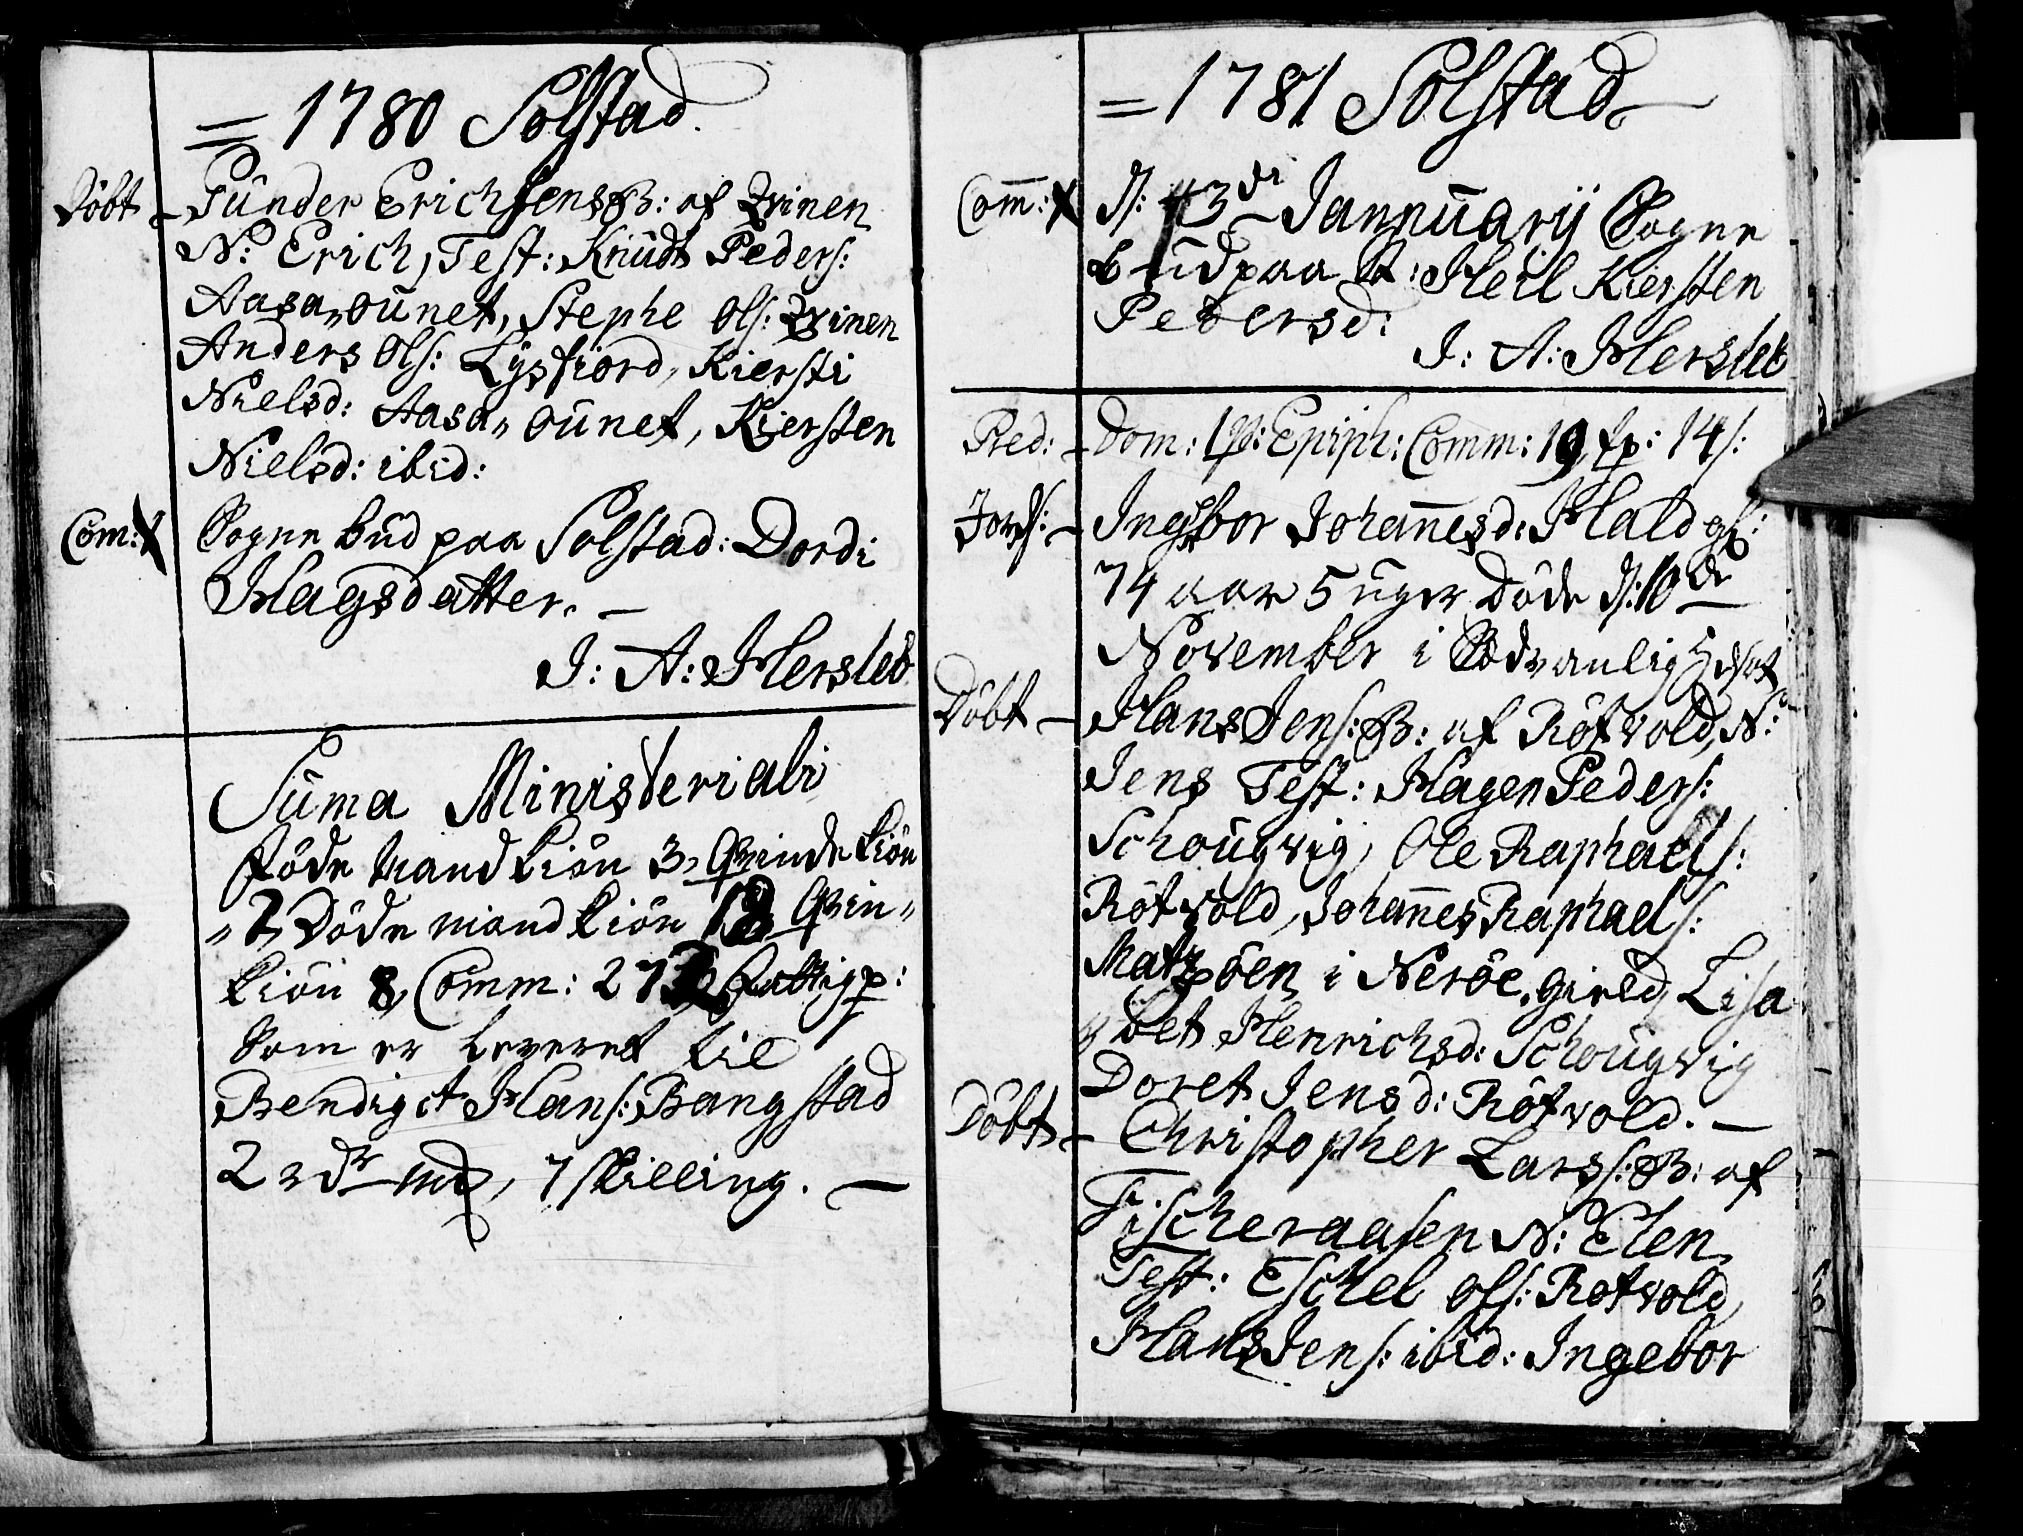 = 1780 Solstad.
Döbt – Tünder Erichsens B: af Qvinen
N: Erich, Test: Knüdt Peders:
Aasa„oünet, Stephe Ols: Qvinen
Anders Ols: Lysfiord, Kiersti
Nielsd: Aasa„oünet, Kiersten
Nielsd: ibid:
Com: Sogne bud paa Solstad: Dordi
Hagsdatter. –
J: A: Hersleb
Suma Ministeriali
födde mandkiön 3, Qvindekiön
„2, Döde mandkiön Qvin„
kiön 8, Comm: Fattigp:
som er leveret til
Bendigct Hans: Bangstad
2 rdr 7 skilling. –
= 1781 Solstad
Com: D: 3di Jannuarij Sogne
bud paa Heil Kiersten
Pedersd:
J: A: Hersleb
Præd: – Dom: 1 p: Epiph: Comm: 19, fp: 14 s:
Jords: – Ingebor Johannesd: Hald gl:
74 aar 5 uger Döde d: 10de
November i Sædvanlig
Döbt – Hans Jens: B: af Rötvold, N:
Jens Test: Hagen Peders:
Schougvig, Ole Raphaels:
Rötvold, Johannes Raphaels:
Matzöen i Neröe, Lisa
bet Henrichsd: Schougvig
Doret Jensd: Rötvold. –
Döbt – Christopher Larss: B: af
Fischeraasen N: Elen,
Test: Eschel Ols: Rötvold,
Hans Jens: ibid: Ingebor